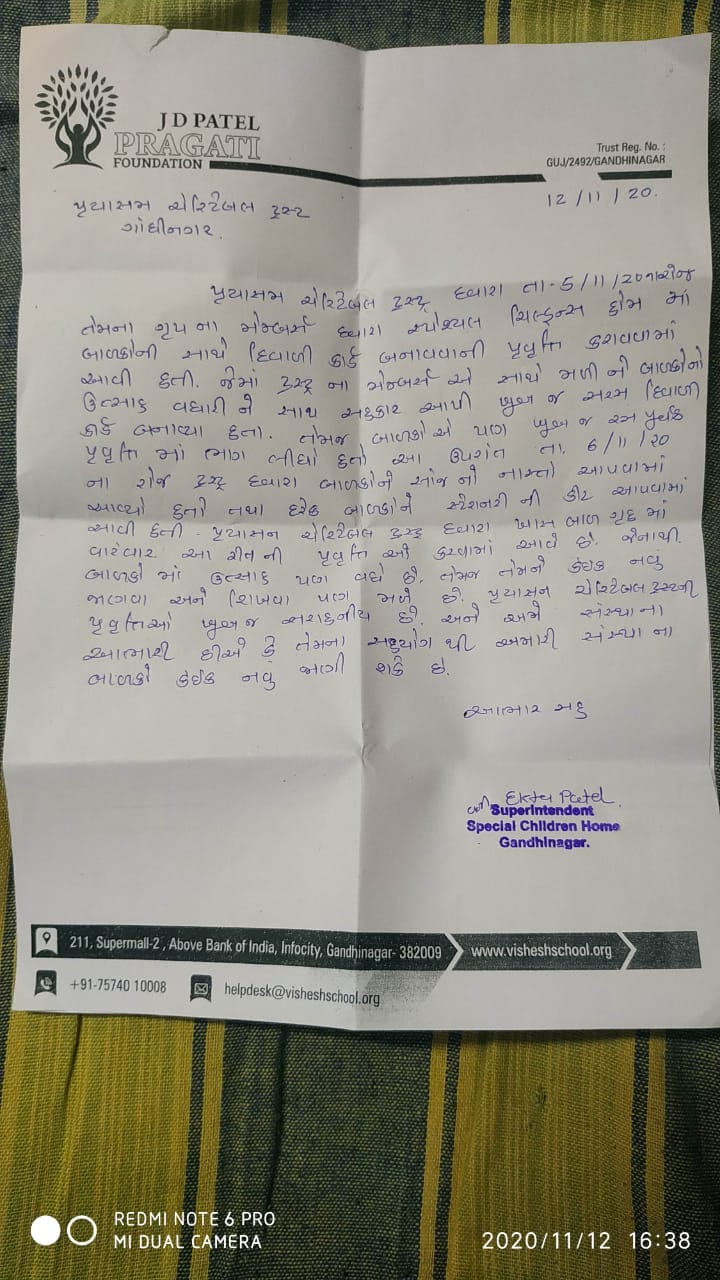 J D PATEL
PRAGATI
FOUNDATION
Trust Reg. No. :
GUJ/2492/GANDHINAGAR
12/11/20.
પ્રયાસમ ચેરિટેબલ ટ્રસ્ટ
ગાંધીનગર.
પ્રયાસમ ચેરિટેબલ ટ્રસ્ટ દ્વારા તા-5/11/20નારોજ
તેમના ગૃપ ના મેમ્બર્સ દ્વારા સ્પેશ્યલ ચિલ્ડ્રન્સ હોમ માં
બાળકોની સાથે દિવાળી કાર્ડ બનાવવાની પ્રવૃત્તિ કરાવવામાં
આવી હતી. જેમાં ટ્રસ્ટ ના મેમ્બર્સ એ સાથે મળી ને બાળકોનો
ઉત્સાહ વધારી ને સાથ સહકાર આપી ખુબ જ સરસ દિવાળી
કાર્ડ બનાવ્યા હતા. તેમજ બાળકો એ પણ ખુબ જ રસ પૂર્વક
પ્રવૃત્તિ માં ભાગ લીધો હતો આ ઉપરાંત તા. 6/11/20
ના રોજ ટ્રસ્ટ દ્વારા બાળકોને સાંજ નો નાસ્તો આપવામાં
આવ્યો હતો તથા દરેક બાળકોને સ્ટેશનરી ની કીટ આપવામાં
આવી હતી. પ્રયાસમ ચેરિટેબલ ટ્રસ્ટ દ્વારા ખાસ બાળ ગૃહ માં
વારંવાર આ રીત ની પ્રવૃત્તિ ઓ કરવામાં આવે છે. જેનાથી
બાળકો માં ઉત્સાહ પણ વધે છે. તેમજ તેમને કંઈક નવું
જાણવા અને શિખવા પણ મળે છે. પ્રયાસમ ચેરિટેબલ ટ્રસ્ટની
પ્રવૃત્તિઓ ખુબ જ સરાહનીય છે. અને અમે સંસ્થા ના
આભારી છીએ કે તેમના સહયોગ થી અમારી સંસ્થા ના
બાળકો કંઈક નવું જાણી શકે છે.
આભાર સહ
Ekta Patel.
Superintendent
Special Children Home
Gandhinagar.
211, Supermall-2, Above Bank of India, Infocity, Gandhinagar- 382009
www.visheshschool.org
+91-75740 10008
helpdesk@visheshschool.org
REDMI NOTE 6 PRO
MI DUAL CAMERA
2020/11/12 16:38